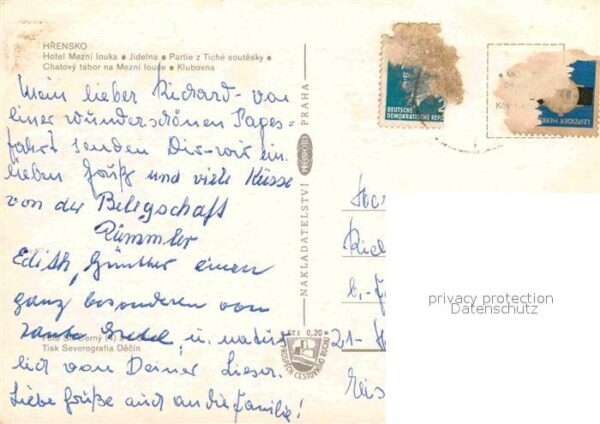 HŘENSKO
Hotel Mezní louka • Jídelna • Partie z Tiché soutěsky •
Chatový tábor na Mezní louce • Klubovna
Mein lieber Richard - von
einer wunderschönen Tages=
fahrt senden Dir wir ein.
lieben Gruß und viele Küsse
von der Belegschaft
Rümmler
Edith, Günther einen
ganz besonderen von
Tante Gretel, u. natür
lich von Deiner Liesel.
Liebe Grüße auch an die Familie!
Tisk Severografia Děčín
NAKLADATELSTVÍ PRESSFOTO PRAHA
Kčs 0,20
DEUTSCHE
DEMOKRATISCHE REPU
2
LEIPZIGER HERB
privacy protection
Datenschutz